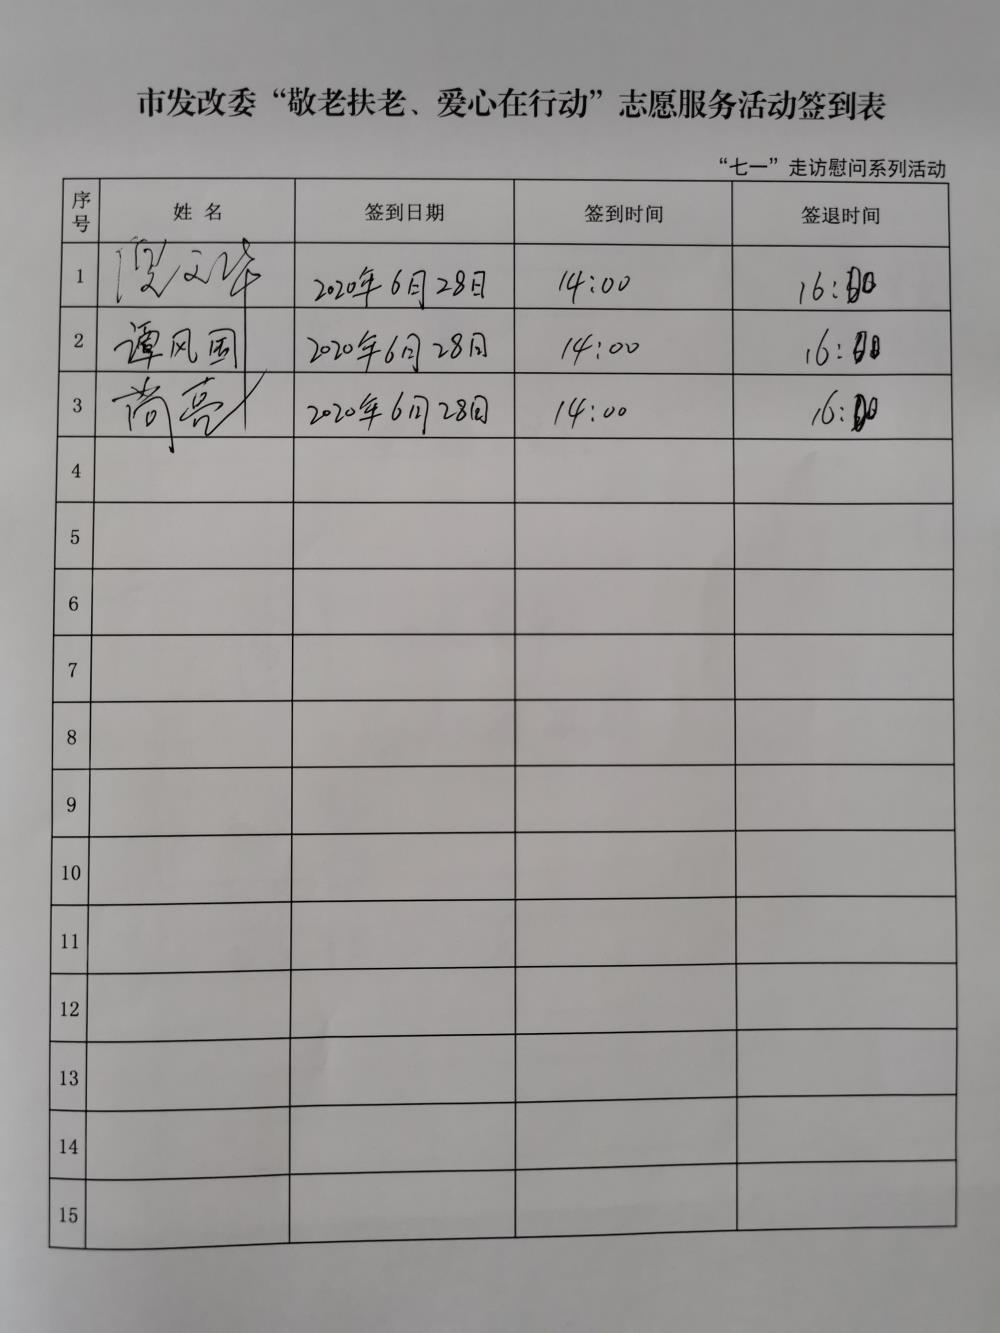 市发改委“敬老扶老、爱心在行动”志愿服务活动签到表
“七一”走访慰问系列活动
序号 姓 名 签到日期 签到时间 签退时间
1 文华 2020年6月28日 14:00 16:00
2 谭风国 2020年6月28日 14:00 16:00
3 尚亮 2020年6月28日 14:00 16:00
4
5
6
7
8
9
10
11
12
13
14
15